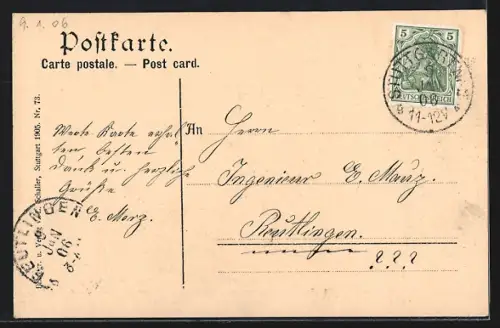 9. 1. 06
Postkarte.
Carte postale. — Post card.
5 5
DEUTSCHES REICH
STUTTGART
06
11-12V
Schaller, Stuttgart 1905. Nr. 73.
Werte Karte erhal-
ten besten
Dank u. herzliche
Grüße
E. Merz.
An Herrn
Ingenieur E. Merz.
Reutlingen
???
REUTLINGEN
JAN
06